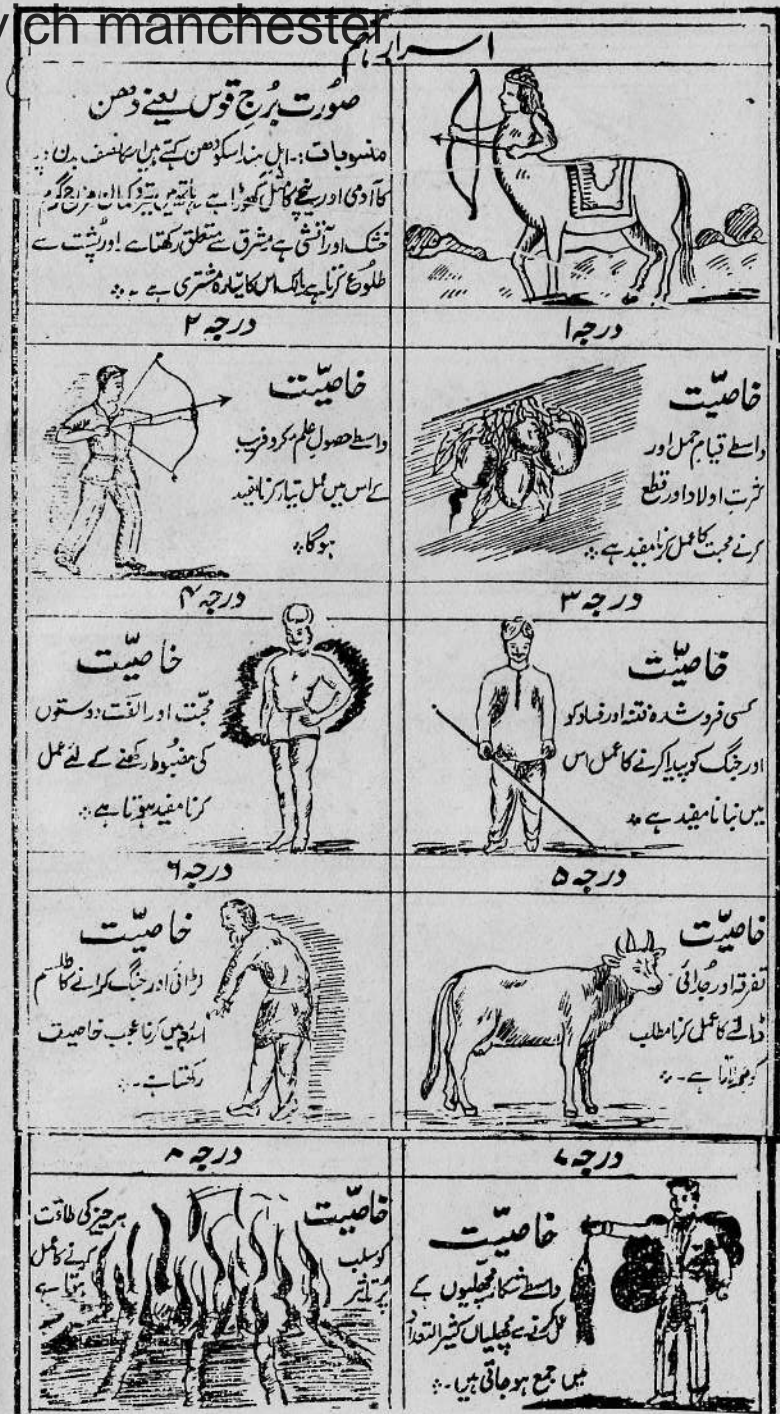 vich manchester
اسرارہم
صورت برجِ قوس یعنے دھن
منسوبات:۔ اہل ہند اسکو دھن کہتے ہیں اسکا نصف بدن
کا آدمی اور نیچے کا مثل گھوڑا ہے ہاتھ میں تیر و کمان مزاج گرم
خشک اور آتشی ہے مشرق سے متعلق رکھتا ہے اور پشت سے
طلوع کرتا ہے مالک اس کا ستارہ مشتری ہے ۔
درجہ ۱
خاصیّت
واسطے قیام حمل اور
کثرت اولاد اور قطع
کرنے محبت کا عمل کرنا مفید ہے
درجہ ۲
خاصیّت
واسطے حصول علم مکر و فریب
کے اس میں عمل تیار کرنا مفید
ہوگا
درجہ ۳
خاصیّت
کسی فرو شدہ فتنہ اور فساد کو
اور جنگ کو پیدا کرنے کا عمل اس
میں بنانا مفید ہے
درجہ ۴
خاصیّت
محبّت اور الفت دوستوں
کی مضبوط رکھنے کے لئے عمل
کرنا مفید ہوتا ہے
درجہ ۵
خاصیّت
تفرقہ اور جُدائی
ڈالنے کا عمل کرنا مطلب
ہے ۔
درجہ ۶
خاصیّت
لڑائی اور جنگ کرانے کا طلسم
میں کرنا عجب خاصیت
رکھتا ہے ۔
درجہ ۷
خاصیّت
واسطے شکار مچھلیوں کے
عمل کرنے سے مچھلیاں کثیر التعداد
میں جمع ہو جاتی ہیں ۔
درجہ ۸
خاصیّت
ہر چیز کی طاقت
کو سلب کرنے کا عمل
پُر تاثیر ہوتا ہے